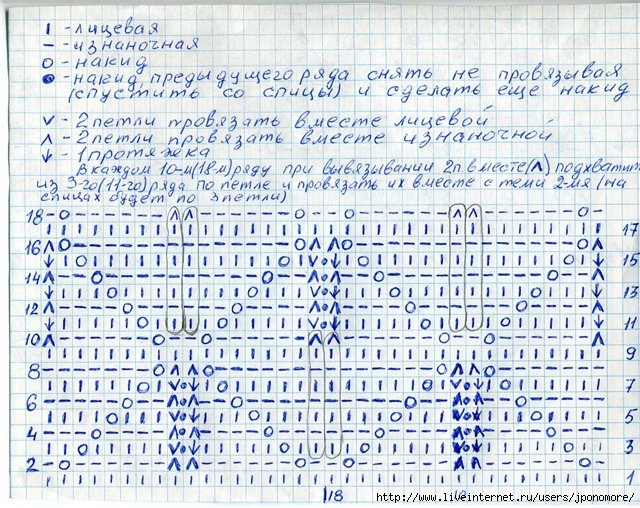 ı - лицевая
– - изнаночная
о - накид
● - накид предыдущего ряда снять не провязывая
(спустить со спицы) и сделать еще накид
v - 2 петли провязать вместе лицевой
ʌ - 2 петли провязать вместе изнаночной
↓ - 1 протяжка
В каждом 10-м (18 м) ряду при вывязывании 2п вместе (ʌ) подхватить
из 3-го (11-го) ряда по петле и провязать их вместе с теми 2-мя (на
спицах будет по 3 петли)
18
17
16
15
14
13
12
11
10
9
8
7
6
5
4
3
2
1
18
http://www.liveinternet.ru/users/jponomore/